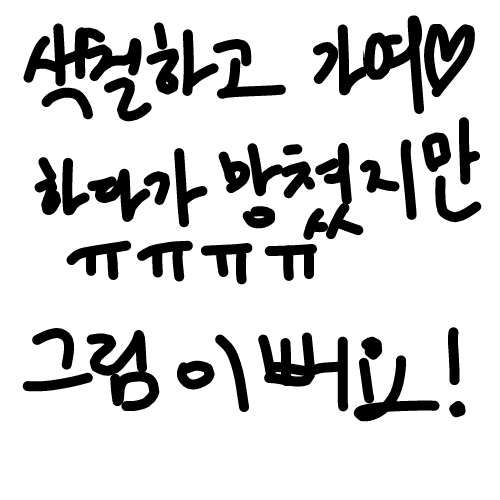 색칠하고 가여♡
하다가 망쳤지만
ㅠㅠㅠㅠ
그림이뻐요!